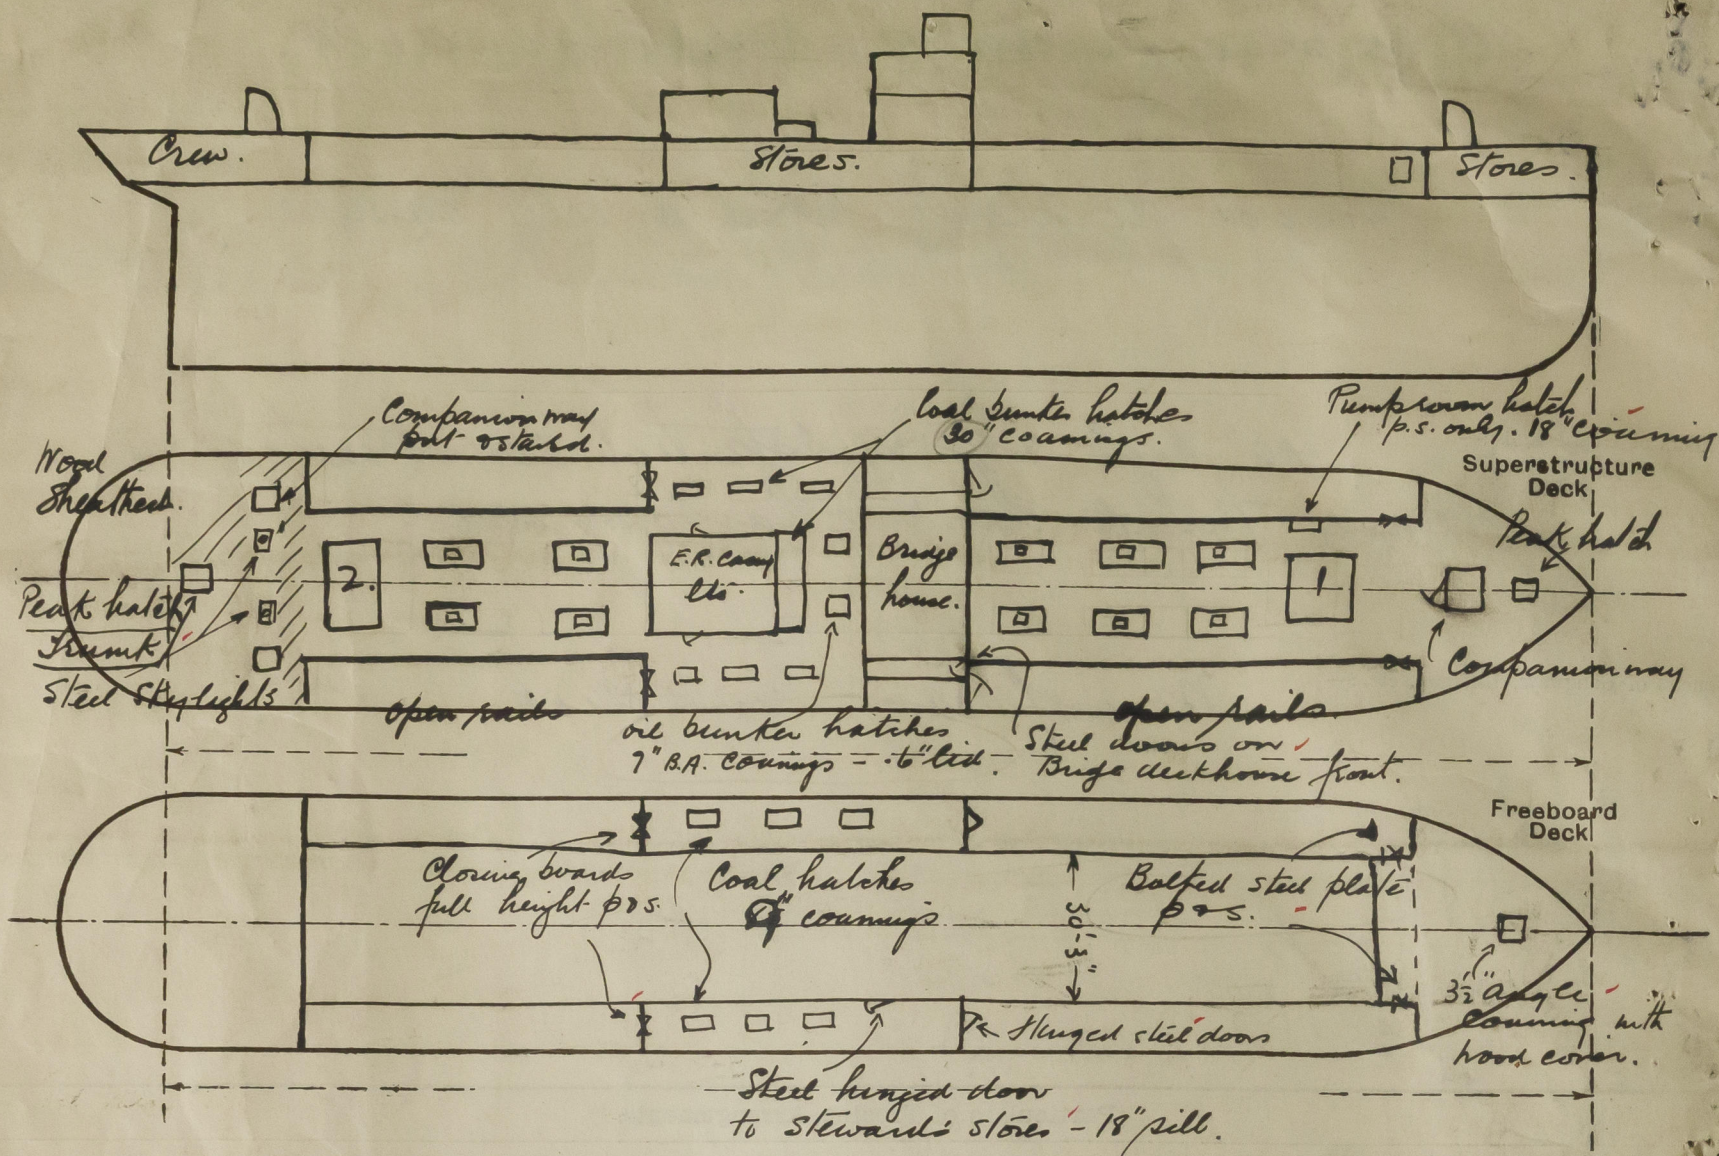 Crew.
Stores.
Stores.
Companionway
port & starbd.
Coal bunker hatches
30" coamings.
Pumproom hatch
p.s. only. 18" coaming
Wood
Sheathed.
Superstructure
Deck
Peak hatch
2.
E.R. casing
Bridge
house.
1
Peak hatch
Trunk
Steel Skylights
Companionway
open rails
open rails.
oil bunker hatches
7" B.A. coamings - 6" lid.
Steel doors on
Bridge deckhouse front.
Freeboard
Deck
Closing boards
full height p & s.
Coal hatches
coamings
30'-3"
Bolted steel plate
p & s.
3½" angle
coaming with
wood cover.
Hinged steel doors
Steel hinged door
to Steward's stores - 18" sill.